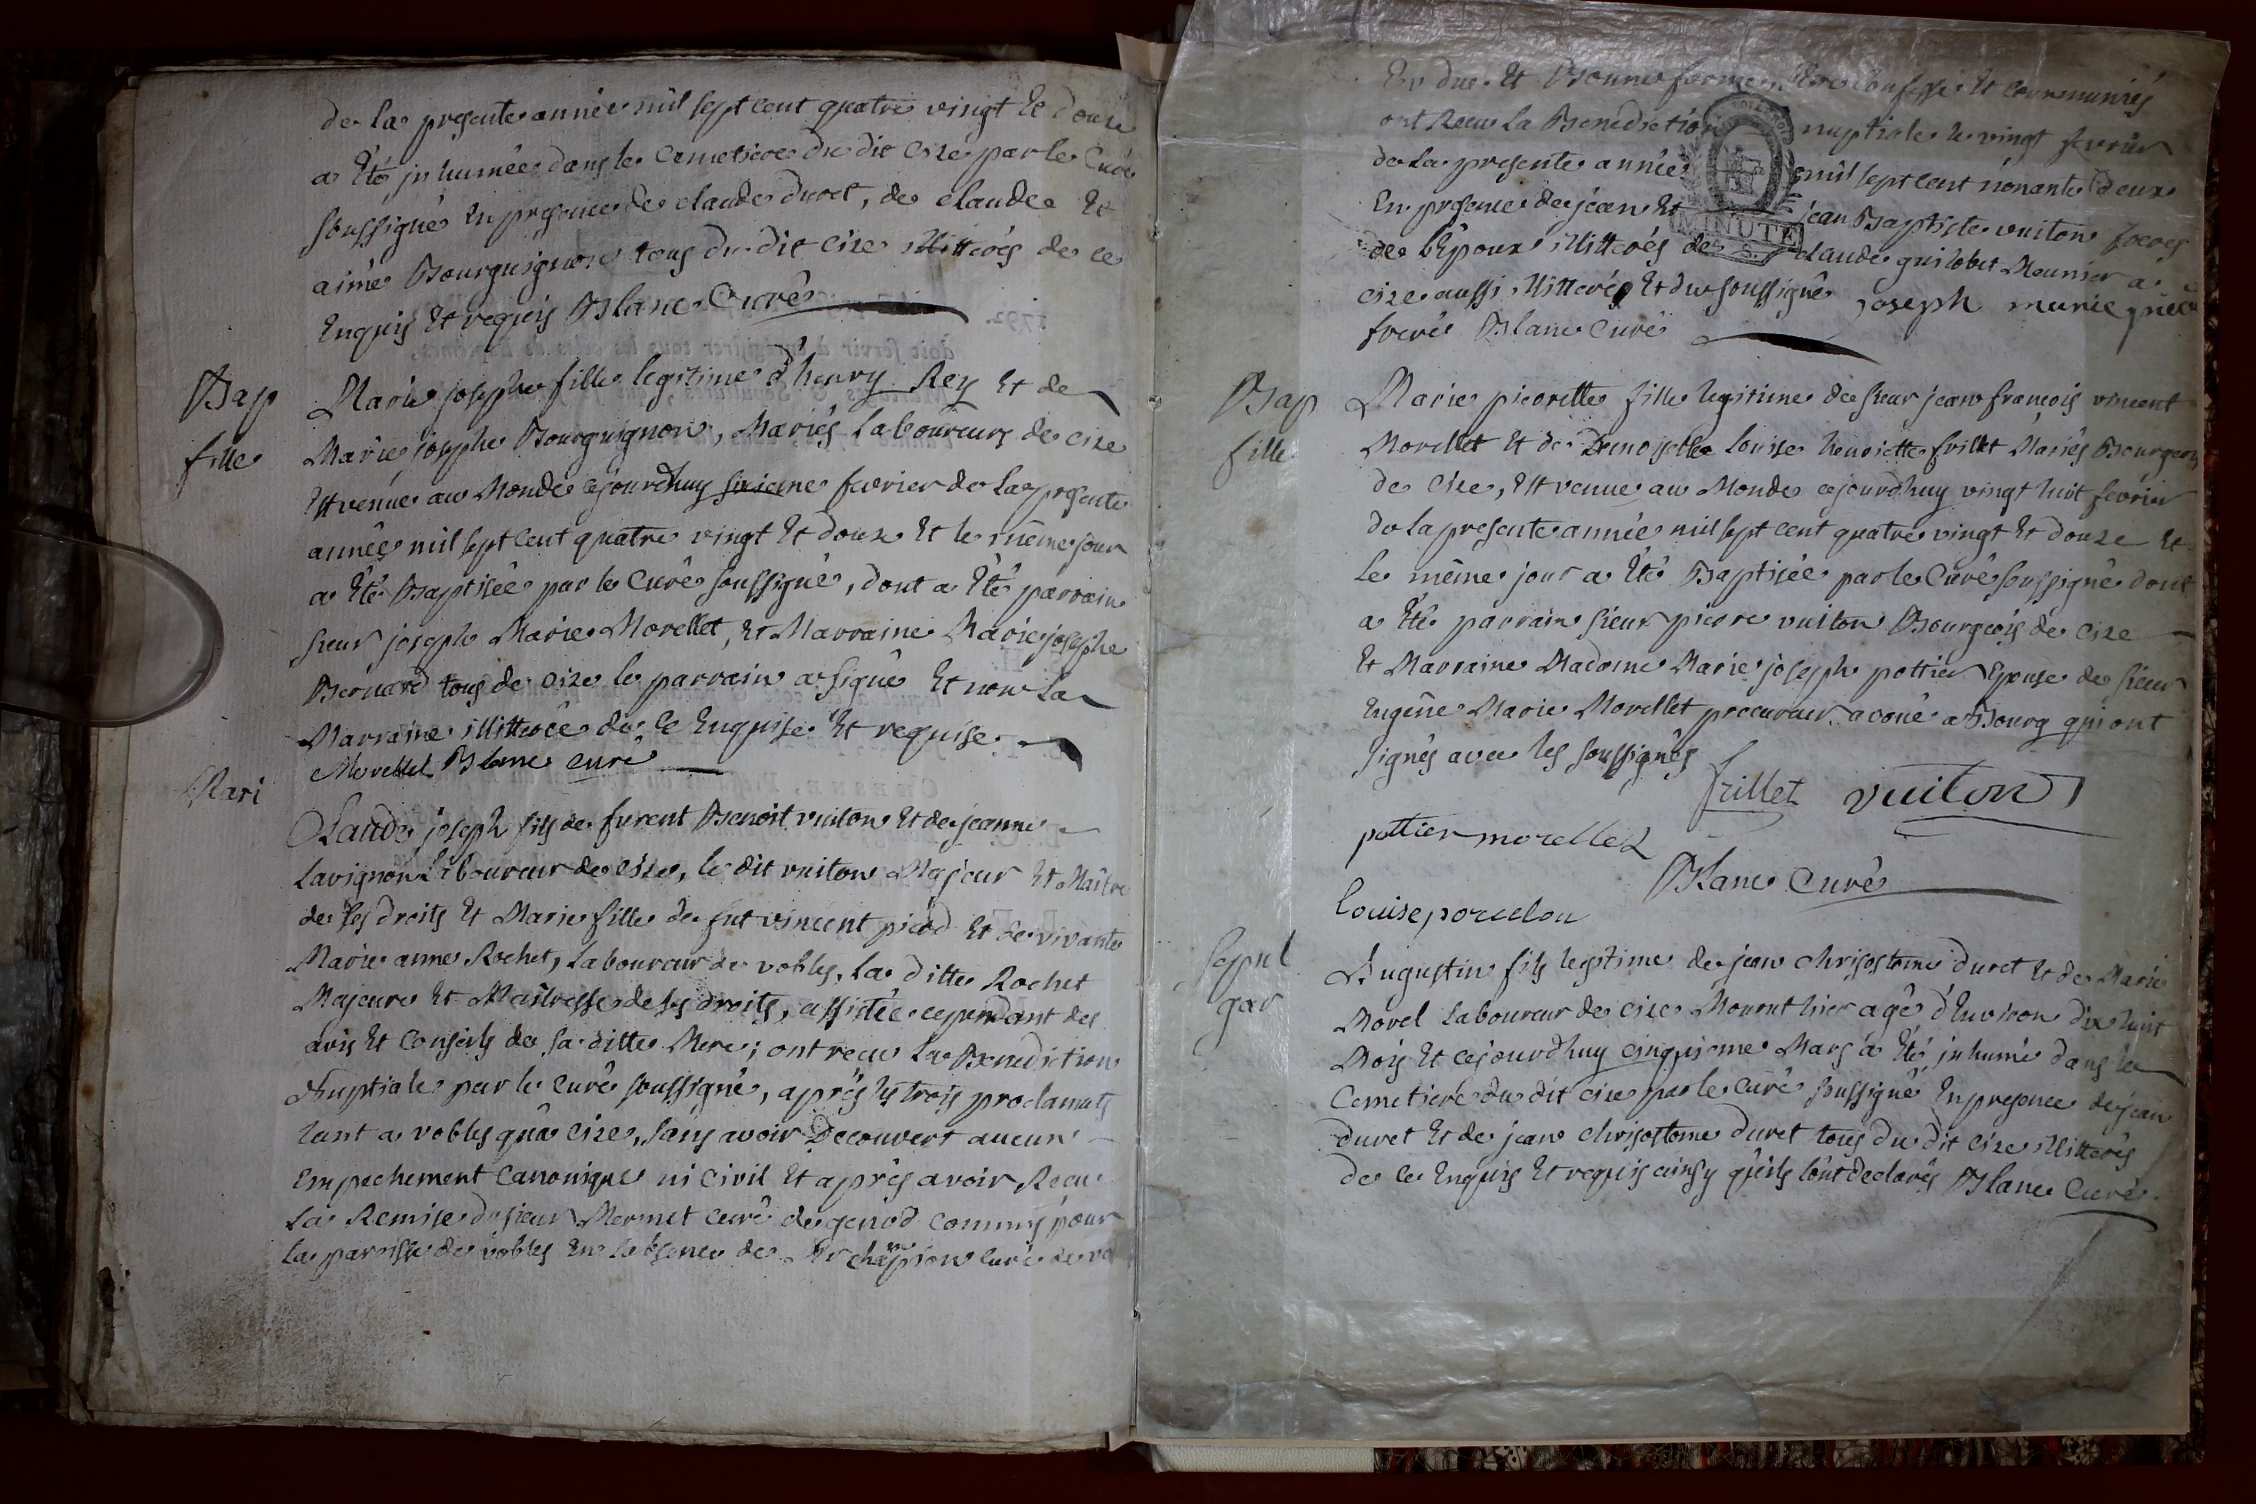 de la presente année mil sept cent quatre vingt et douze
a êté inhumée dans le cemetiere du dit cize par le Curé
soussigné en presence de claude duret, de claude et
aimé Bourguignon tous du dit cize illitterés de ce
enquis et requis Blanc Curé
Bap
fille
Marie josephe fille legitime d'henry Rey et de
Marie josephe Bourguignon, Mariés Laboureurs de cize
est venüe au Monde cejourdhuy fevrier de la presente
année mil sept cent quatre vingt et douze et le même jour
a êté Baptisée par le Curé soussigné, dont a êté parrain
sieur joseph Marie Morellet, et Marraine Marie josephe
Bernard tous de cize le parrain a signé et non la
Marraine illitterée de ce enquise et requise
Morellet Blanc curé
Mari
Claude joseph fils de furent Benoit vuiton et de jeanne
Lavignon Laboureur de cize, le dit vuiton Majeur et Maître
de ses droits et Marie fille de fut vincent picod et de vivante
Marie anne Rochet, Laboureur de vobles, la ditte Rochet
Majeure et Maîtresse de ses droits, assistée cependant des
avis et conseils de sa ditte Mere; ont recu la Benediction
Nuptiale par le curé soussigné, aprés les trois proclamats
tant a vobles qu'a cize, sans avoir Decouvert aucun
empechement canonique ni civil et aprês avoir Recu
La Remise du sieur Mermet curé de genod commis pour
la paroisse de vobles en l'absence de Mr champion curé de vo
en due et Bonne forme, confessés et communiés
ont Recu la Benediction nuptiale le vingt fevrier
MINUTE
de la presente année mil sept cent nonante deux
en presence de jean et jean Baptiste vuiton freres
de l'êpoux illitterés de claude guilobet Meunier a
cize aussi illitteré et du soussigné joseph marie
Blanc Curé
Bap
fille
Marie pierrette fille legitime de sieur jean françois vincent
Morellet et de Demoiselle Louise henriette frillet Mariés Bourgeois
de cize, est venue au Monde cejourdhuy vingt huit fevrier
de la presente année mil sept cent quatre vingt et douze et
le même jour a êté Baptisée par le Curé soussigné dont
a êté parrain sieur pierre vuiton Bourgeois de cize
et Marraine Madame Marie joseph pottier Epouse de sieur
Eugêne Marie Morellet procureur avoué a Bourg qui ont
signés avec les soussignés
frillet vuiton
pottier morellet
Blanc Curé
Louise porcelon
Sepul
gar
Augustin fils legitime de jean chrisostome duret et de Marie
Morel Laboureur de cize Mourut hier agé d'Environ dix huit
Mois et cejourdhuy cinquieme Mars a êté inhumé dans le
Cemetiere du dit cize par le curé soussigné en presence de jean
duret et de jean chrisostome duret tous du dit cize illitterés
de ce enquis et requis ainsy qu'ils l'ont declarés Blanc Curé